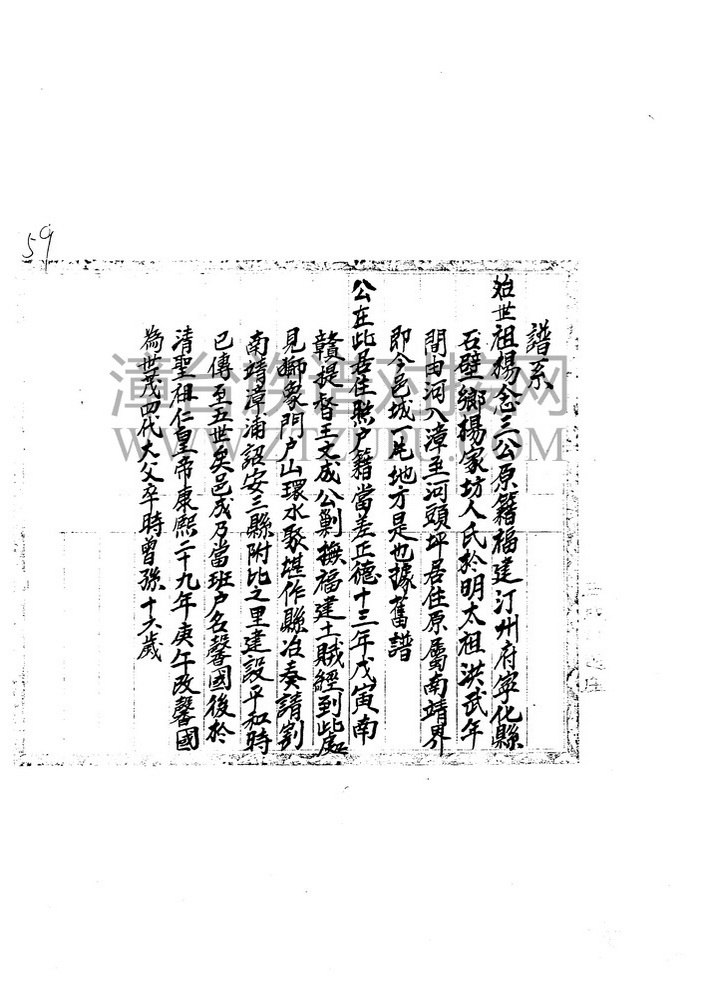 59
譜系
始世祖楊念三公原籍福建汀州府寧化縣
石壁鄉楊家坊人氏於明太祖洪武年
間由河入漳至河頭坪居住原屬南靖界
即今邑城一片地方是也據舊譜
公在此居住照户籍當差正德十三年戊寅南
贛提督王文成公剿撫福建土賊經到此處
見獅象門户山環水聚堪作縣治奏請割
南靖漳浦詔安三縣附比之里建設平和時
已傳至五世矣邑成乃當班户名馨國後於
清聖祖仁皇帝康熙二十九年庚午改馨國
為世茂四代大父卒時曾孫十六歲
漳台族谱对接网
WWW.ZTZUPU.COM